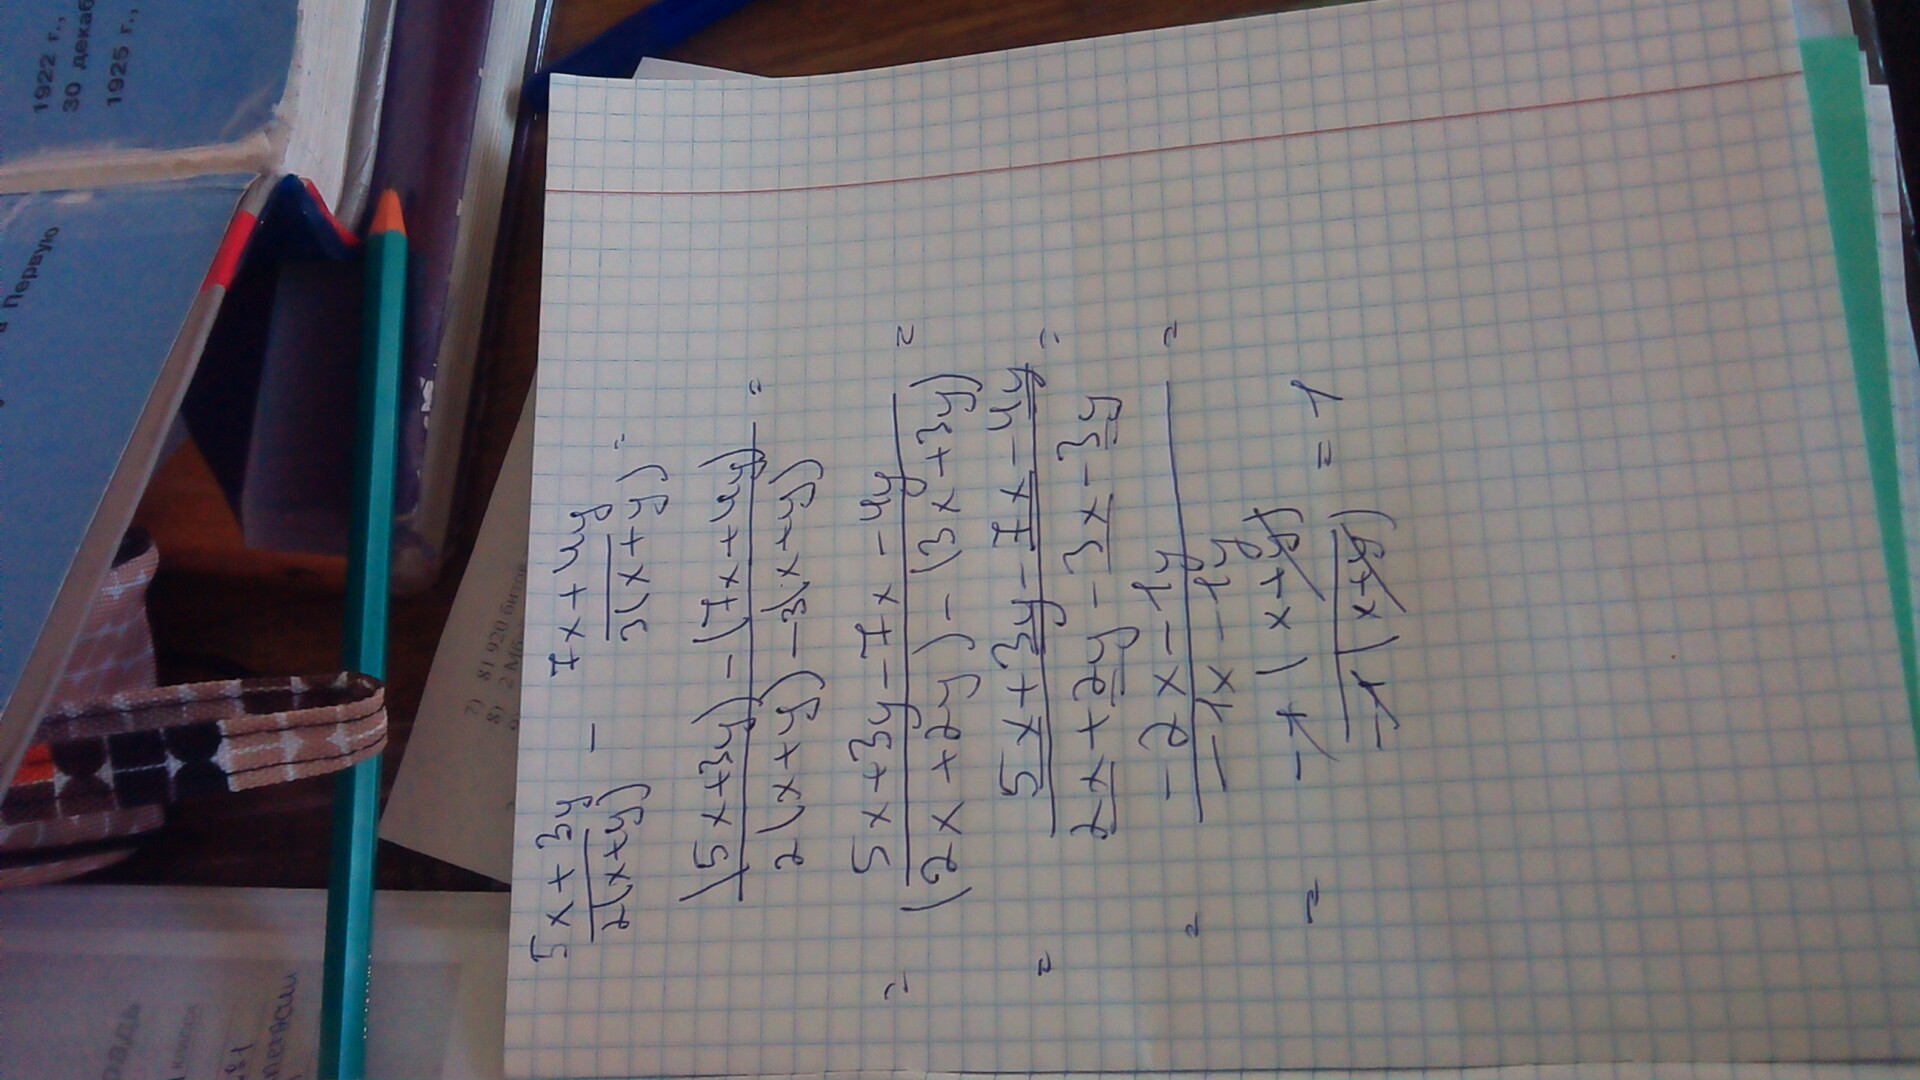 1922 г.,
30 декаб
1925 г.,
Первую
7) 81 920 битов
8) 2 Мб
5x + 3y / 2(x+y) - 7x + 4y / 3(x + y) =
(5x+3y) - (7x + 4y) / 2(x+y) - 3(x+y) =
= 5x + 3y - 7x - 4y / (2x + 2y) - (3x + 3y) =
= 5x + 3y - 7x - 4y / 2x + 2y - 3x - 3y =
= -2x - 1y / -1x - 1y =
= -1 (x+y) / -1 (x+y) = 1